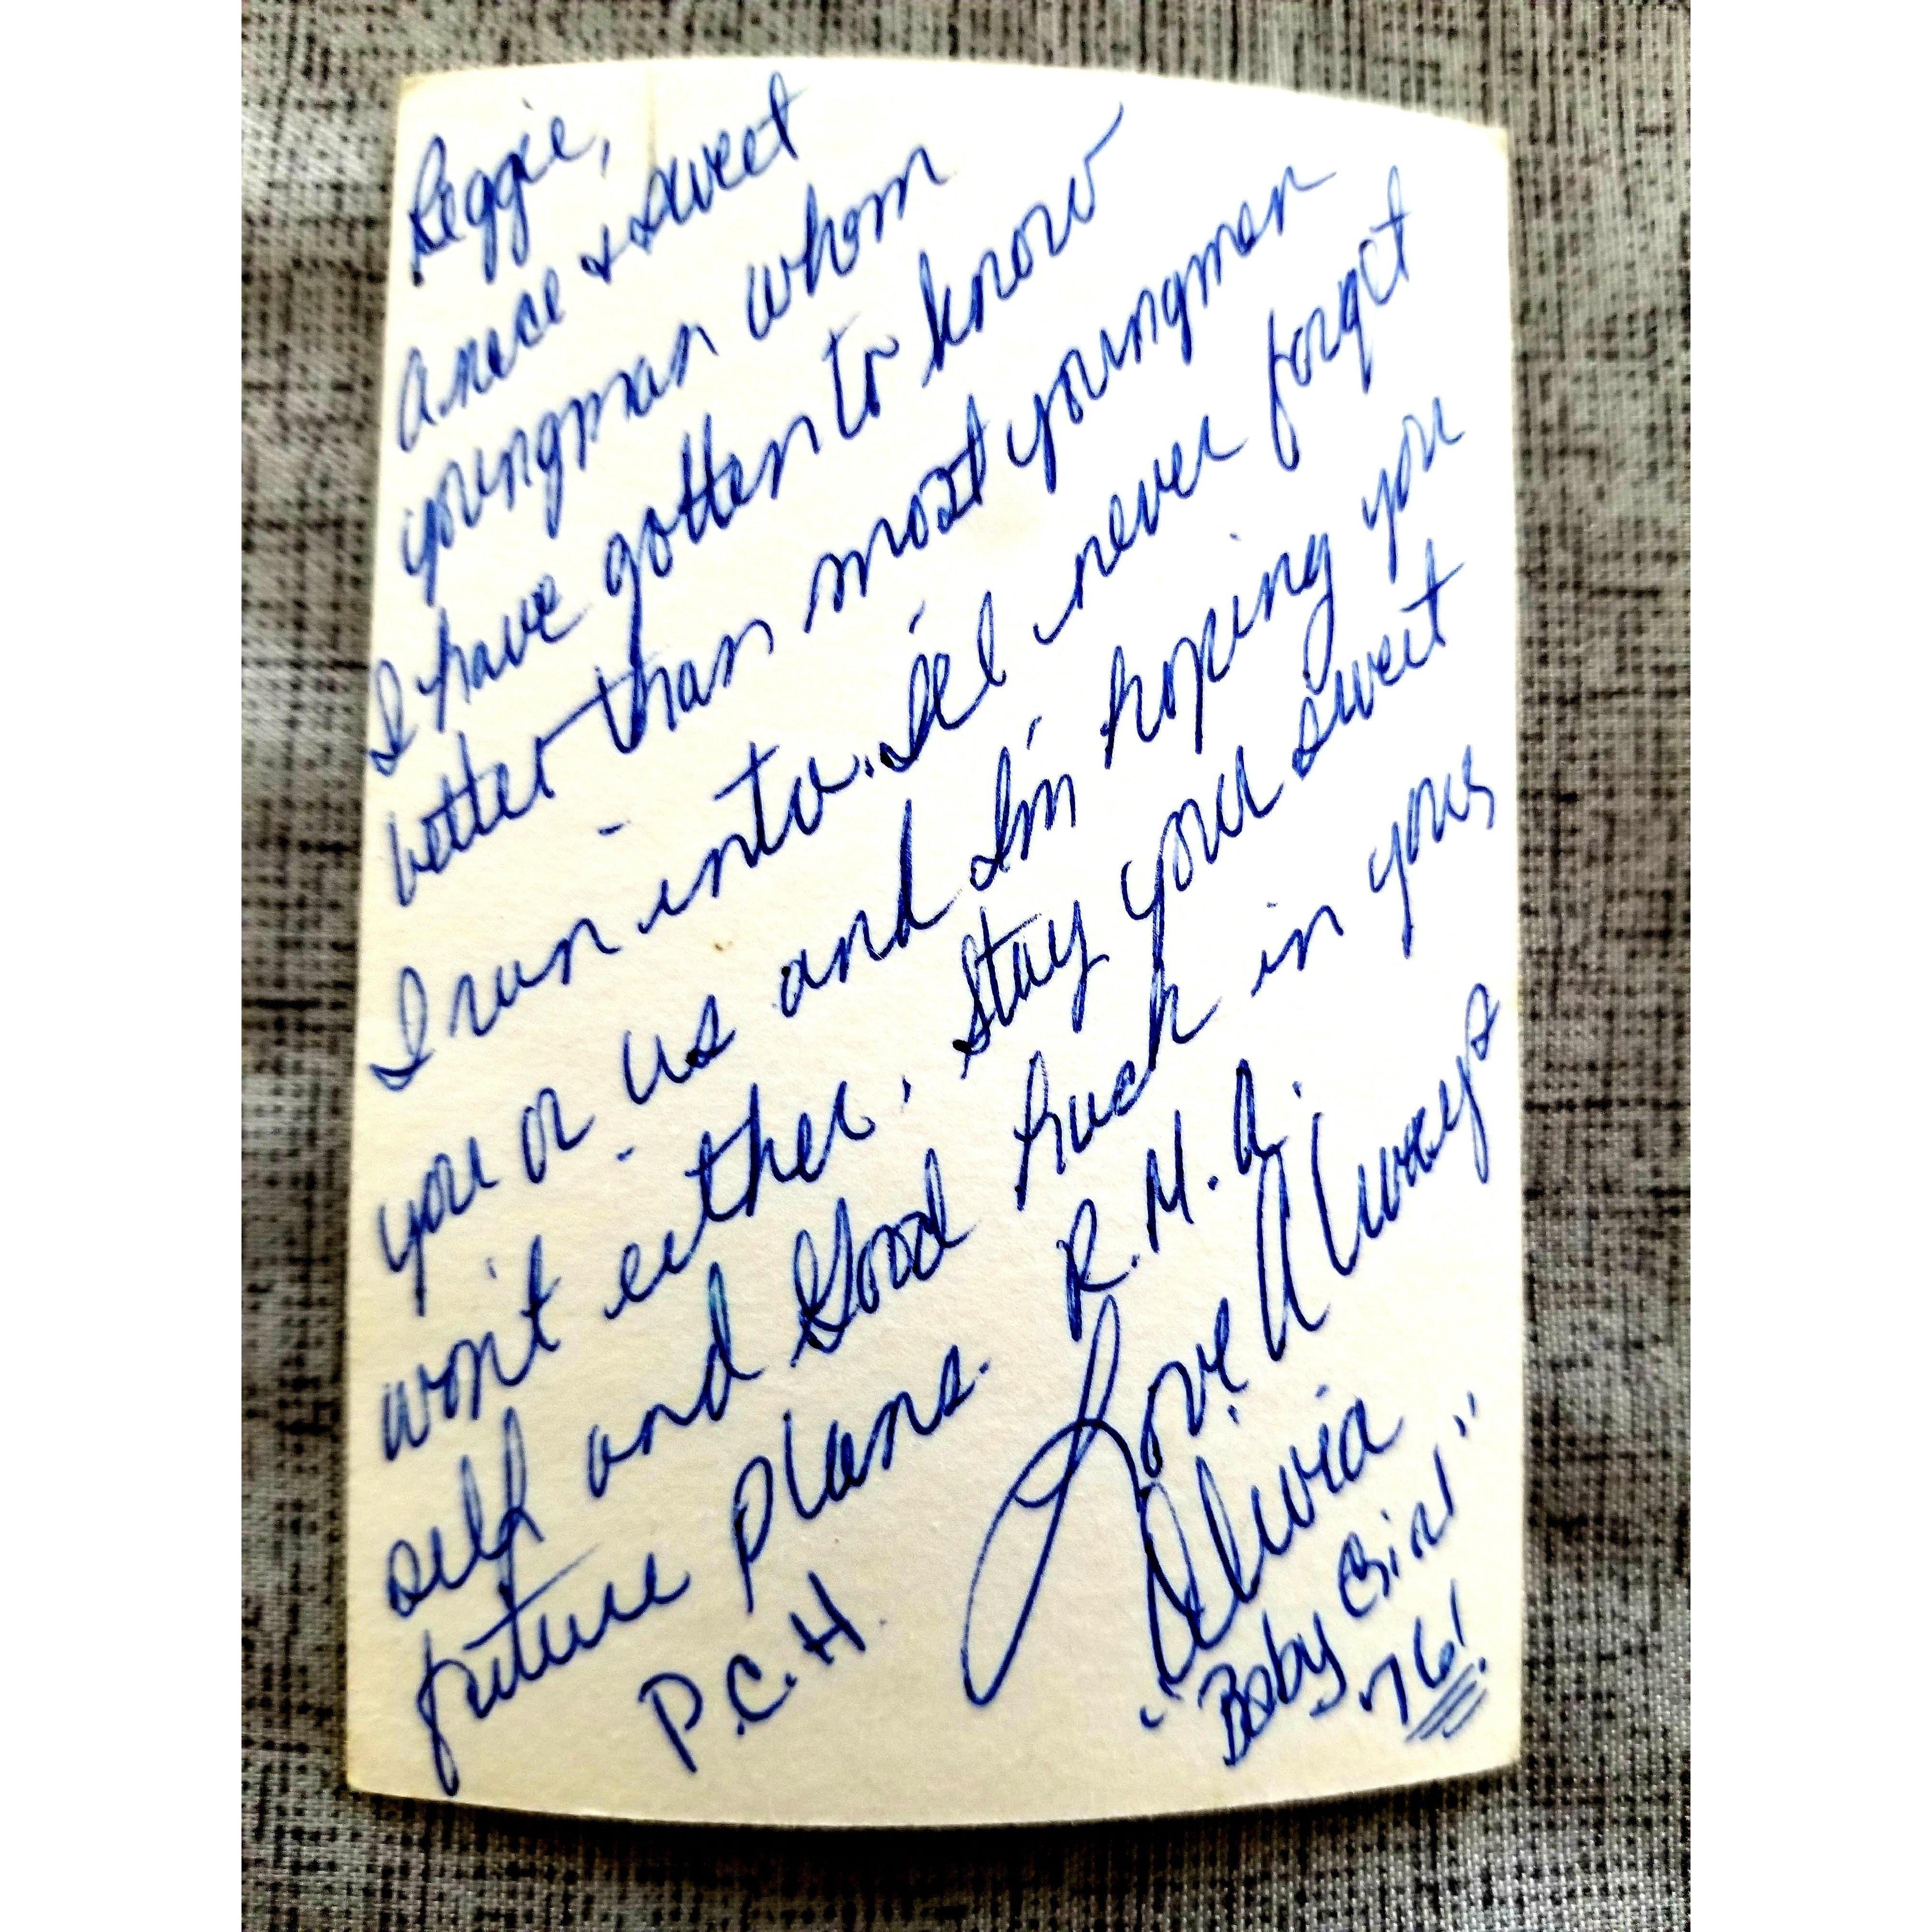 Reggie,
A nice & sweet
youngman whom
I have gotten to know
better than most youngmen
I run into. I'll never forget
you or us and I'm hoping you
won't either. Stay your sweet
self and Good Luck in your
future plans. R.M.A.
P.C.H.
Love Always
Olivia
"Baby Girl"
76!